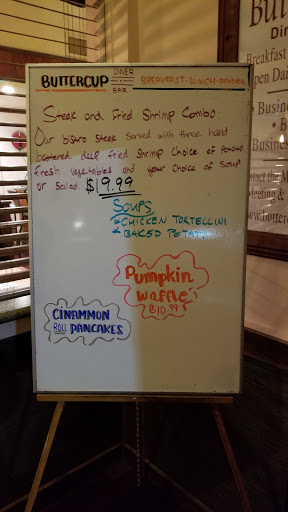 BUTTERCUP DINER BAR BREAKFAST-LUNCH-DINNER
Steak and Fried Shrimp Combo:
Our bistro steak served with three hand
battered deep fried shrimp choice of potato
fresh vegetables and your choice of soup
or salad. $19.99
SOUPS
*CHICKEN TORTELLINI
*BAKED
Pumpkin
Waffle
$10.99
CINAMMON
ROLL PANCAKES
But
Din
Breakfast
Open Dai
Busine
B
Busin
Meeting &
www.butterc